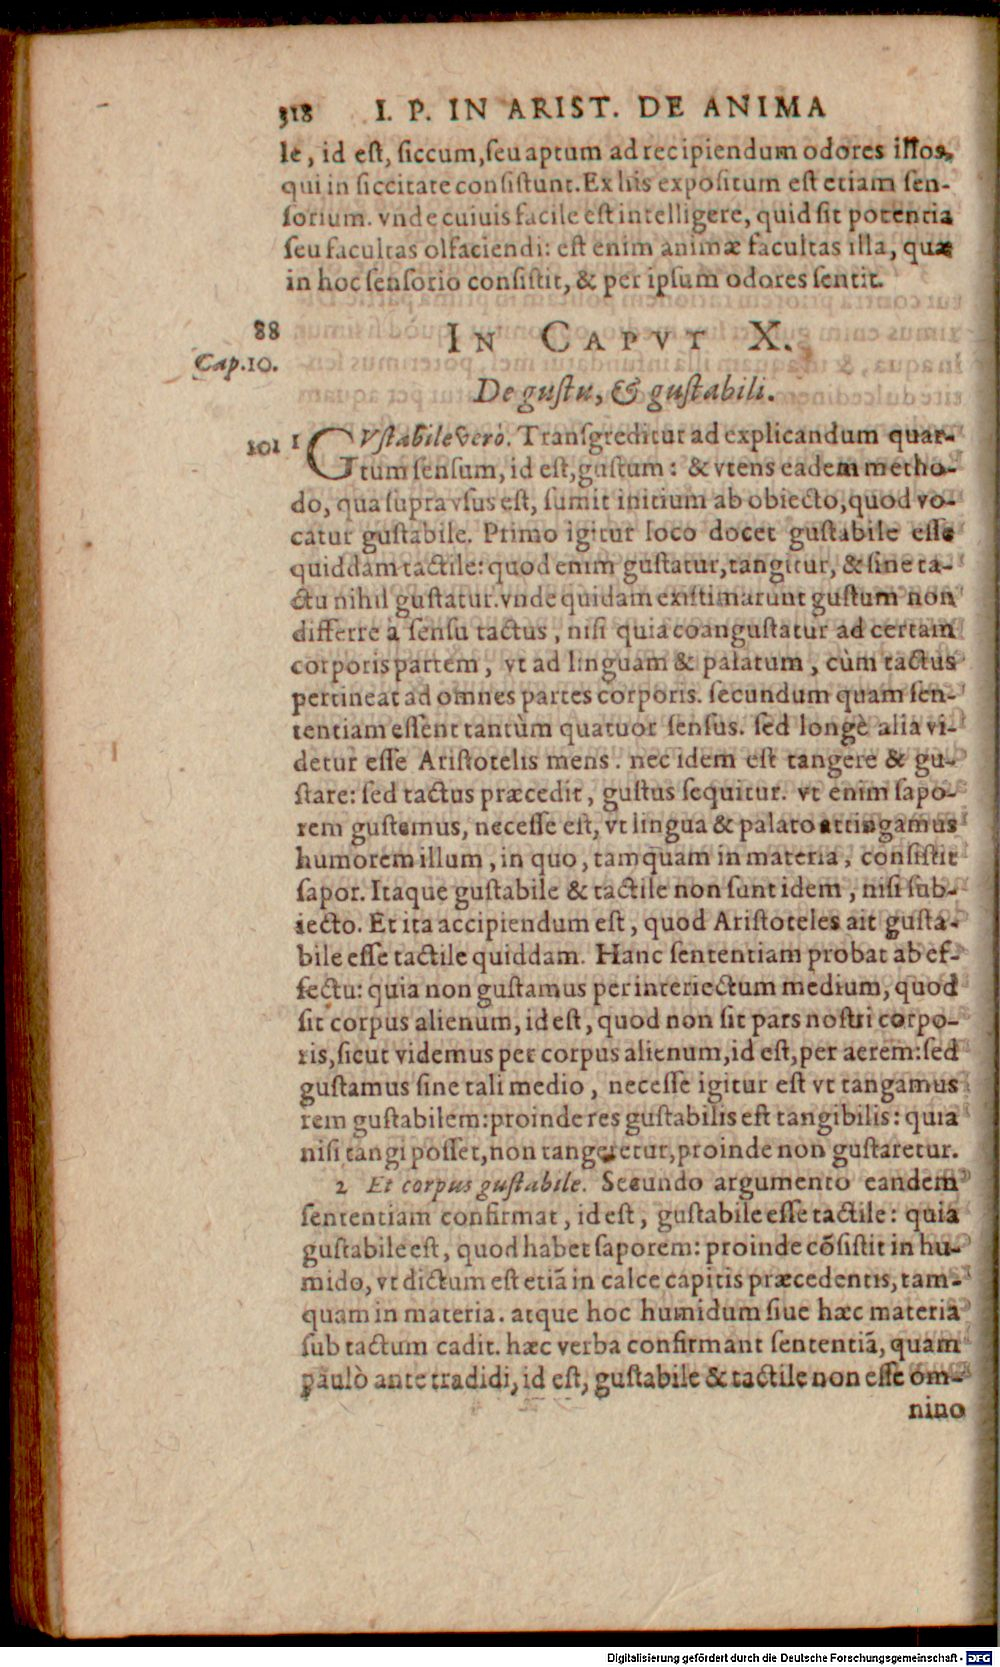 318 I. P. IN ARIST. DE ANIMA
le, id eſt, ſiccum, ſeu aptum ad recipiendum odores illos,
qui in ſiccitate conſiſtunt. Ex his expoſitum eſt etiam ſen-
ſorium. vnde cuiuis facile eſt intelligere, quid ſit potentia
ſeu facultas olfaciendi: eſt enim animæ facultas illa, quæ
in hoc ſenſorio conſiſtit, & per ipſum odores ſentit.
88
IN CAPVT X.
Cap. 10.
De guſtu, & guſtabili.
101 1 GVſtabile verò. Tranſgreditur ad explicandum quar-
tum ſenſum, id eſt, guſtum: & vtens eadem metho-
do, qua ſupra vſus eſt, ſumit initium ab obiecto, quod vo-
catur guſtabile. Primo igitur loco docet guſtabile eſſe
quiddam tactile: quod enim guſtatur, tangitur, & ſine ta-
ctu nihil guſtatur. vnde quidam exiſtimarunt guſtum non
differre à ſenſu tactus, niſi quia coanguſtatur ad certam
corporis partem, vt ad linguam & palatum, cùm tactus
pertineat ad omnes partes corporis. ſecundum quam ſen-
tentiam eſſent tantùm quatuor ſenſus. ſed longè alia vi-
detur eſſe Ariſtotelis mens. nec idem eſt tangere & gu-
ſtare: ſed tactus præcedit, guſtus ſequitur. vt enim ſapo-
rem guſtemus, neceſſe eſt, vt lingua & palato attingamus
humorem illum, in quo, tamquam in materia, conſiſtit
ſapor. Itaque guſtabile & tactile non ſunt idem, niſi ſub-
iecto. Et ita accipiendum eſt, quod Ariſtoteles ait guſta-
bile eſſe tactile quiddam. Hanc ſententiam probat ab ef-
fectu: quia non guſtamus per interiectum medium, quod
ſit corpus alienum, id eſt, quod non ſit pars noſtri corpo-
ris, ſicut videmus per corpus alienum, id eſt, per aerem: ſed
guſtamus ſine tali medio, neceſſe igitur eſt vt tangamus
rem guſtabilem: proinde res guſtabilis eſt tangibilis: quia
niſi tangi poſſet, non tangeretur, proinde non guſtaretur.
2 Et corpus guſtabile. Secundo argumento eandem
ſententiam confirmat, id eſt, guſtabile eſſe tactile: quia
guſtabile eſt, quod habet ſaporem: proinde cõſiſtit in hu-
mido, vt dictum eſt etiã in calce capitis præcedentis, tam-
quam in materia. atque hoc humidum ſiue hæc materia
ſub tactum cadit. hæc verba confirmant ſententiã, quam
paulò ante tradidi, id eſt, guſtabile & tactile non eſſe om-
nino
Digitalisierung gefördert durch die Deutsche Forschungsgemeinschaft - DFG